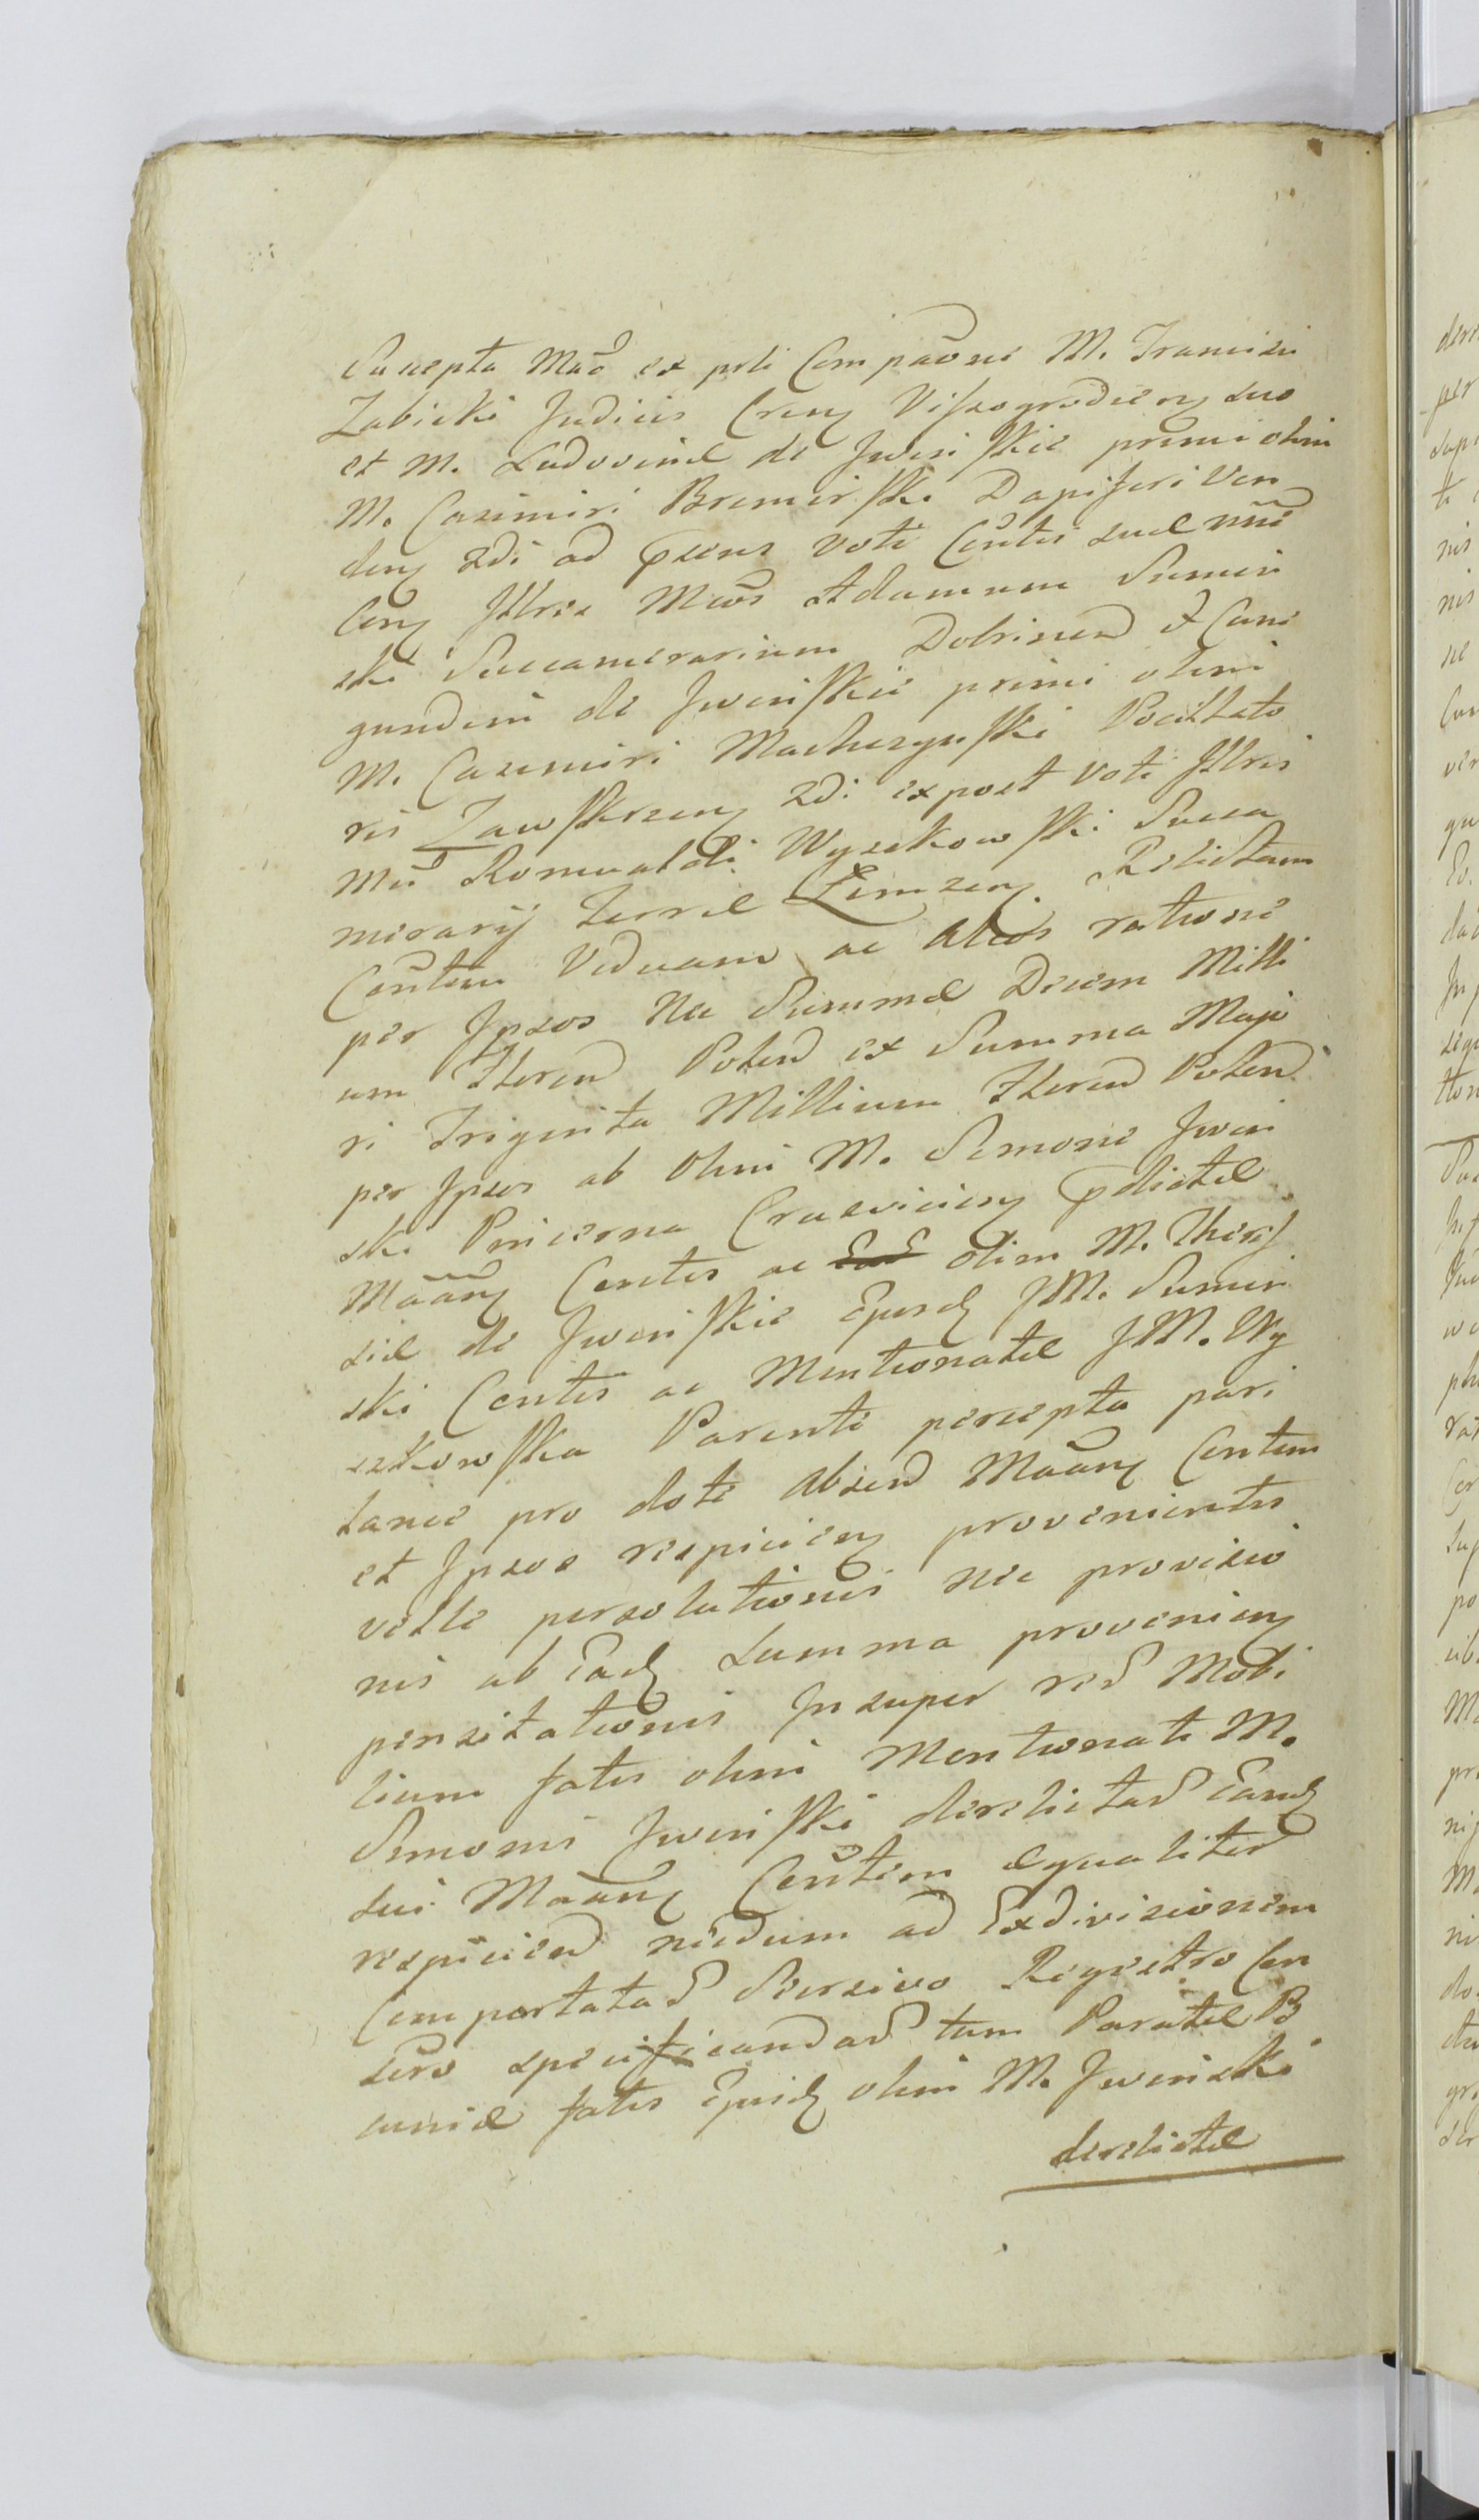 Suscepta Mãõ ex prti Compãone M. Francisci
Zabicki Judicis Creng Viszogrodieng suo
et M. Ludovicæ de Jwinskie primi olim
M. Casimiri Bromirski Dapiferi Ven
deng 2di ad praesens voti Conttis suæ nnie
Cong Jllres Mcos Adamum Sumin
ski Succamerarium Dobrinen et Cuni
gundim de Jwinskie primi olim
M. Casimiri Machczynski Pocillato
ris Zawskrzeng 2di expost voti Jllris
Mci Romualdi Wyszkowski Succa
merarij Terræ Łomzeng Relictam
Conttem Viduam ac Alios rations
per Jpsos Nec Summæ Decem Milli
um Floren Polen ex Summa Majo
ri Triginta Millium Floren Polen
per Jpsos ab olim M. Simone Jwin
ski Pincerna Crusvicieng prælictæ
Mããng Conttis ac olim M. There
siæ de Jwinskie Ejusdg JM. Sumin
ski Conttis ac Mentionatæ JM. Wy
szkowska Parente percepta pari
tance pro dote Absend Mãang Conttem
et Jpsos respicieng provenientis
velle persolutionis nec provisio
nis ab Eadg summa provenieng
pensitationis Jnsuper red Mobi
lium fatis olim Mentionati M.
Simonis Jwinski derelictad Eandg
sui Mãang Conttem æqualiter
respicien needum ad Exdivisionem
Comportatad Seorsivo Regestro Con
sciro specificandad tum Paratæ P
cuniæ fatis Ejusdg olim M. Jwinski
derelictæ